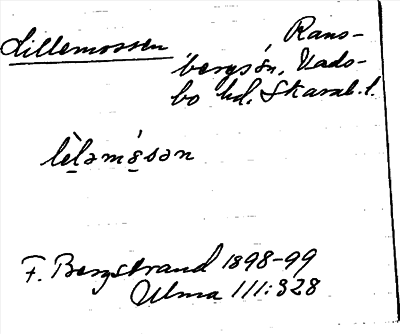 Lillemossen
Rans-
bergs sn. Vads-
bo hd. Skarab. l.
lèləmósən
F. Bergstrand 1898-99
Ulma 111:328